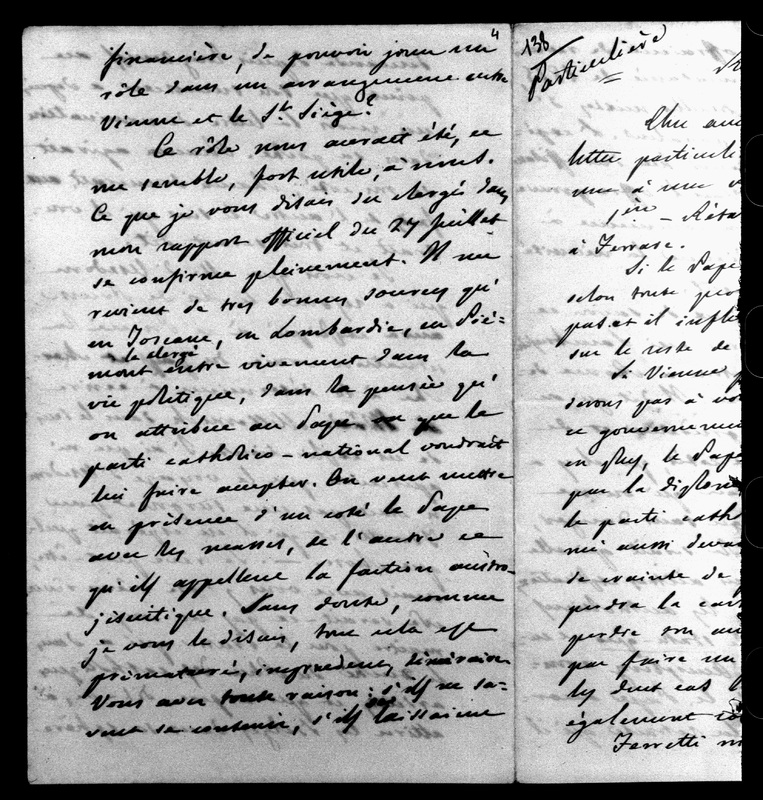 4
financière, de pouvoir jouer un
rôle dans un arrangement entre
Vienne et le St. Siège?
Ce rôle nous aurait été, ce
me semble, fort utile, à nous.
Ce que je vous disais du clergé dans
mon rapport officiel du 27 juillet
se confirme pleinement. Il me
revient de très bonnes sources qu'
en Toscane, en Lombardie, en Pié=
le clergé
mont entre vivement dans la
vie politique, dans la pensée qu'
on attribue au Pape que le
parti catholico-national voudrait
lui faire accepter. On veut mettre
en présence d'un coté le Pape
avec les masses, de l'autre ce
qu'ils appellent la faction austro-
jésuitique. Sans doute, comme
je vous le disais, tout cela est
prématuré, imprudent, téméraire
Vous avez toute raison: s'ils ne sa=
vent se contenir, s'ils laissaient
138
Particulière
lettre particuli
une à une v
1ère - Réta
à Ferrare.
Si le Pape
selon toute pro
pas et il infl
sur le reste de
Si Vienne
devons pas à vo
ce gouverneme
en plus, le Pape
par la diplom
le parti cath
mé aussi deva
de crainte de p
perdra la cau
perdre son au
par faire un
les deux cas
également
Ferretti m